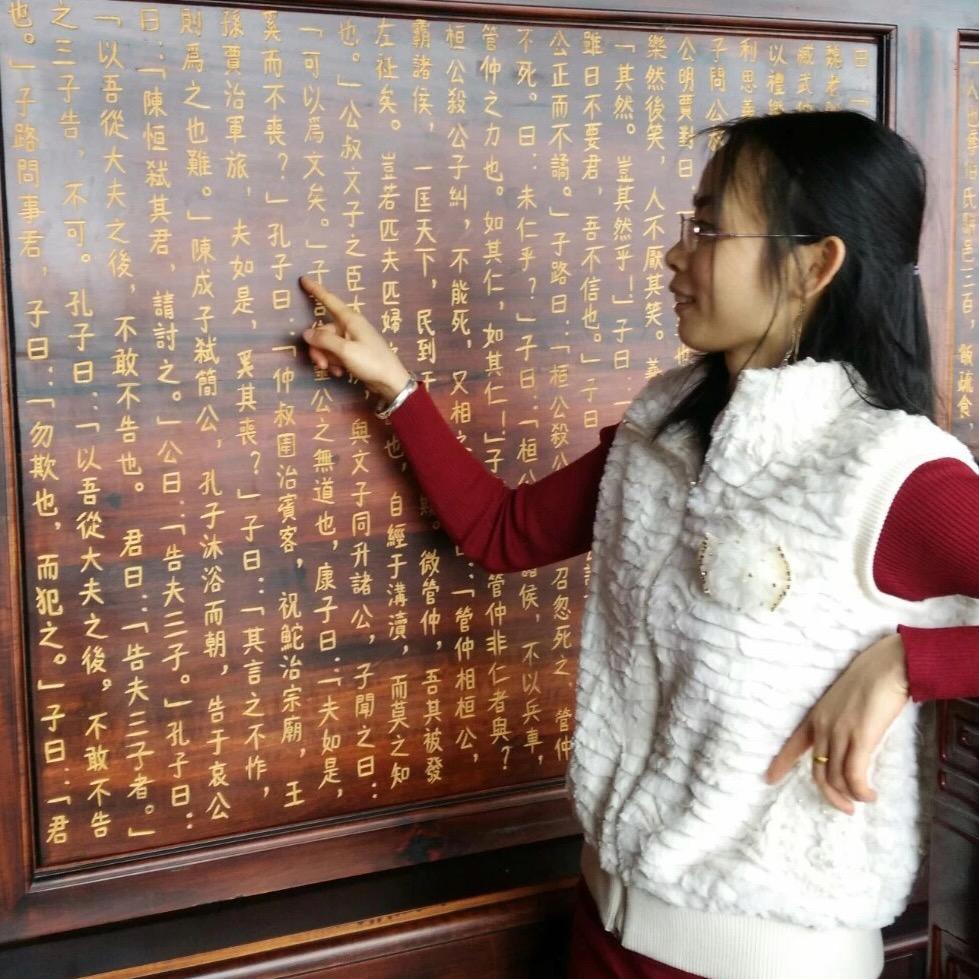 伯氏
邑三百
曰：「
魏老
臧武
以禮樂
利思義
子問公
公明賈對曰
樂然後笑，人不厭其笑。義
「其然。豈其然乎！」子曰：「
雖曰不要君，吾不信也。」子曰
公正而不譎。」子路曰：「桓公殺公 召忽死之 管仲
不死。曰：未仁乎？」子曰：「桓公 諸侯，不以兵車，
管仲之力也。如其仁，如其仁！」子 管仲非仁者與？
桓公殺公子糾，不能死，又相之 曰：「管仲相桓公，
霸諸侯，一匡天下，民到于 賜。微管仲，吾其被發
左衽矣。豈若匹夫匹婦 也，自經于溝瀆，而莫之知
也。」公叔文子之臣大 ，與文子同升諸公，子聞之曰：
「可以爲文矣。」子言 公之無道也，康子曰：「夫如是，
奚而不喪？」孔子曰：「仲叔圉治賓客，祝鮀治宗廟，王
孫賈治軍旅，夫如是，奚其喪？」子曰：「其言之不怍，
則爲之也難。」陳成子弒簡公，孔子沐浴而朝，告于哀公
曰：「陳恒弒其君，請討之。」公曰：「告夫三子。」孔子曰：
「以吾從大夫之後，不敢不告也。君曰：「告夫三子者。」
之三子告，不可。孔子曰：「以吾從大夫之後，不敢不告
也。」子路問事君，子曰：「勿欺也，而犯之。」子曰：「君